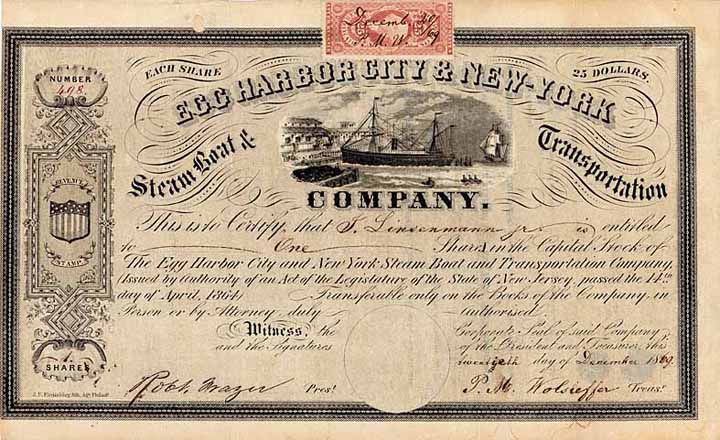 Decemb 20/69
P. M. W.
EACH SHARE
25 DOLLARS.
NUMBER
498
EGG HARBOR CITY & NEW-YORK
Steam Boat & Transportation
COMPANY.
REVENUE
STAMP
This is to Certify, that J. Linsenmann jr. is entitled
to One Share in the Capital Stock of
The Egg Harbor City and New York Steam Boat and Transportation Company
Issued by authority of an Act of the Legislature of the State of New Jersey, passed the 14th
day of April, 1864. Transferable only on the Books of the Company, in
Person or by Attorney duly authorised.
Witness, the Corporate Seal of said Company
and the Signatures of the President and Treasurer, this
twentyeth day of December 1869.
1
SHARES
Robt. Frazer Prest
P. M. Wolsieffer Treast